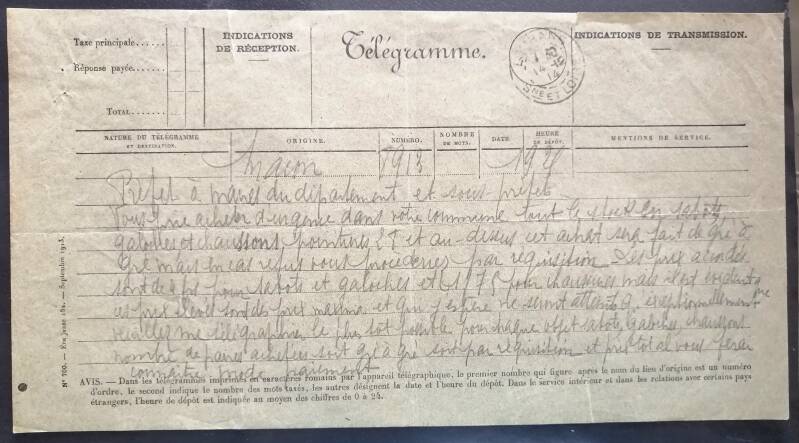 Taxe principale......
Réponse payée......
TOTAL........
INDICATIONS
DE RÉCEPTION.
Télégramme.
INDICATIONS DE TRANSMISSION.
SNE ET LOIRE
NATURE DU TÉLÉGRAMME
ET DESTINATION.
ORIGINE.
NUMÉRO.
NOMBRE
DE MOTS.
DATE.
HEURE
DE DÉPÔT.
MENTIONS DE SERVICE.
Macon
Prefet à maires du département et sous prefet
Vous prie acheter d'urgence dans votre commune tout le stock en sabots
galoches et chaussons pointures 27 et au-dessus cet achat sera fait de gré à
gré mais en cas refus vous procéderez par requisition. Les prix accordés
sont de pour sabots et galoches et pour chaussons mais il est evident que
ces prix sont des prix maxima et que j'espère ne seront atteints q. exceptionnellement
veuillez me télégraphier le plus tot possible pour chaque objet sabots, galoches, chaussons
nombre de paires achetées soit gré à gré soit par requisition et prix total vous ferai
connaitre mode paiement
N° 700. — Septembre 1913.
AVIS. — Dans les télégrammes imprimés en caractères romains par l'appareil télégraphique, le premier nombre qui figure après le nom du lieu d'origine est un numéro
d'ordre, le second indique le nombre des mots taxés, les autres désignent la date et l'heure du dépôt. Dans le service intérieur et dans les relations avec certains pays
étrangers, l'heure de dépôt est indiquée au moyen des chiffres de 0 à 24.